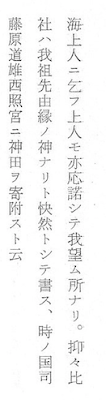 海上人ニ乞フ上人モ亦応諾シテ我望ム所ナリ。抑々比
社ハ我祖先由縁ノ神ナリト快然トシテ書ス、時ノ国司
藤原道雄西照宮ニ神田ヲ寄附スト云